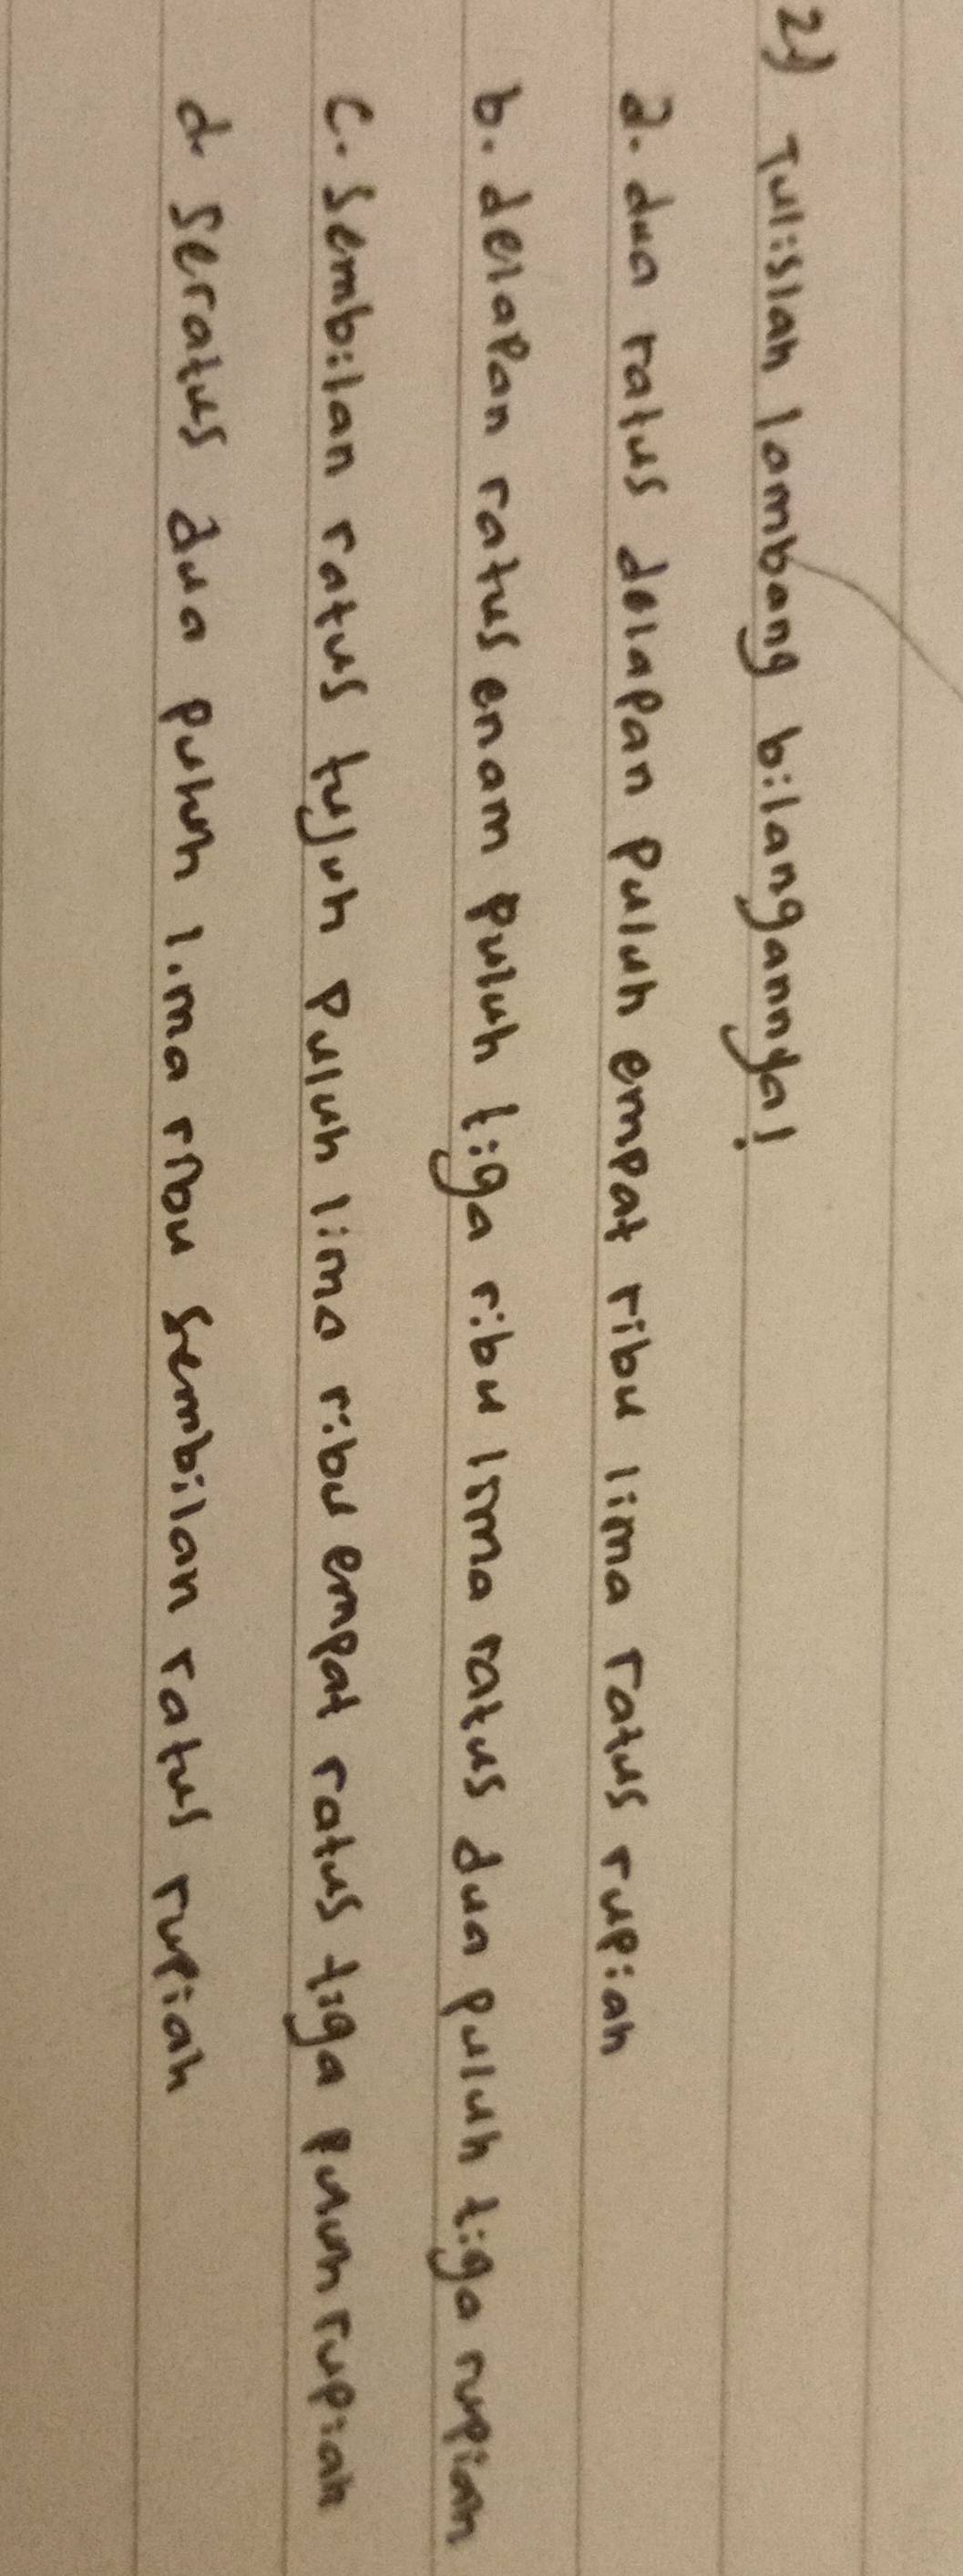 2) Tulislah lambang bilangannya!
a. dua ratus delapan puluh empat ribu lima ratus rupiah
b. delapan ratus enam puluh tiga ribu lima ratus dua puluh tiga rupiah
c. Sembilan ratus tujuh puluh lima ribu empat ratus tiga puluh rupiah
d. Seratus dua puluh lima ribu sembilan ratus rupiah